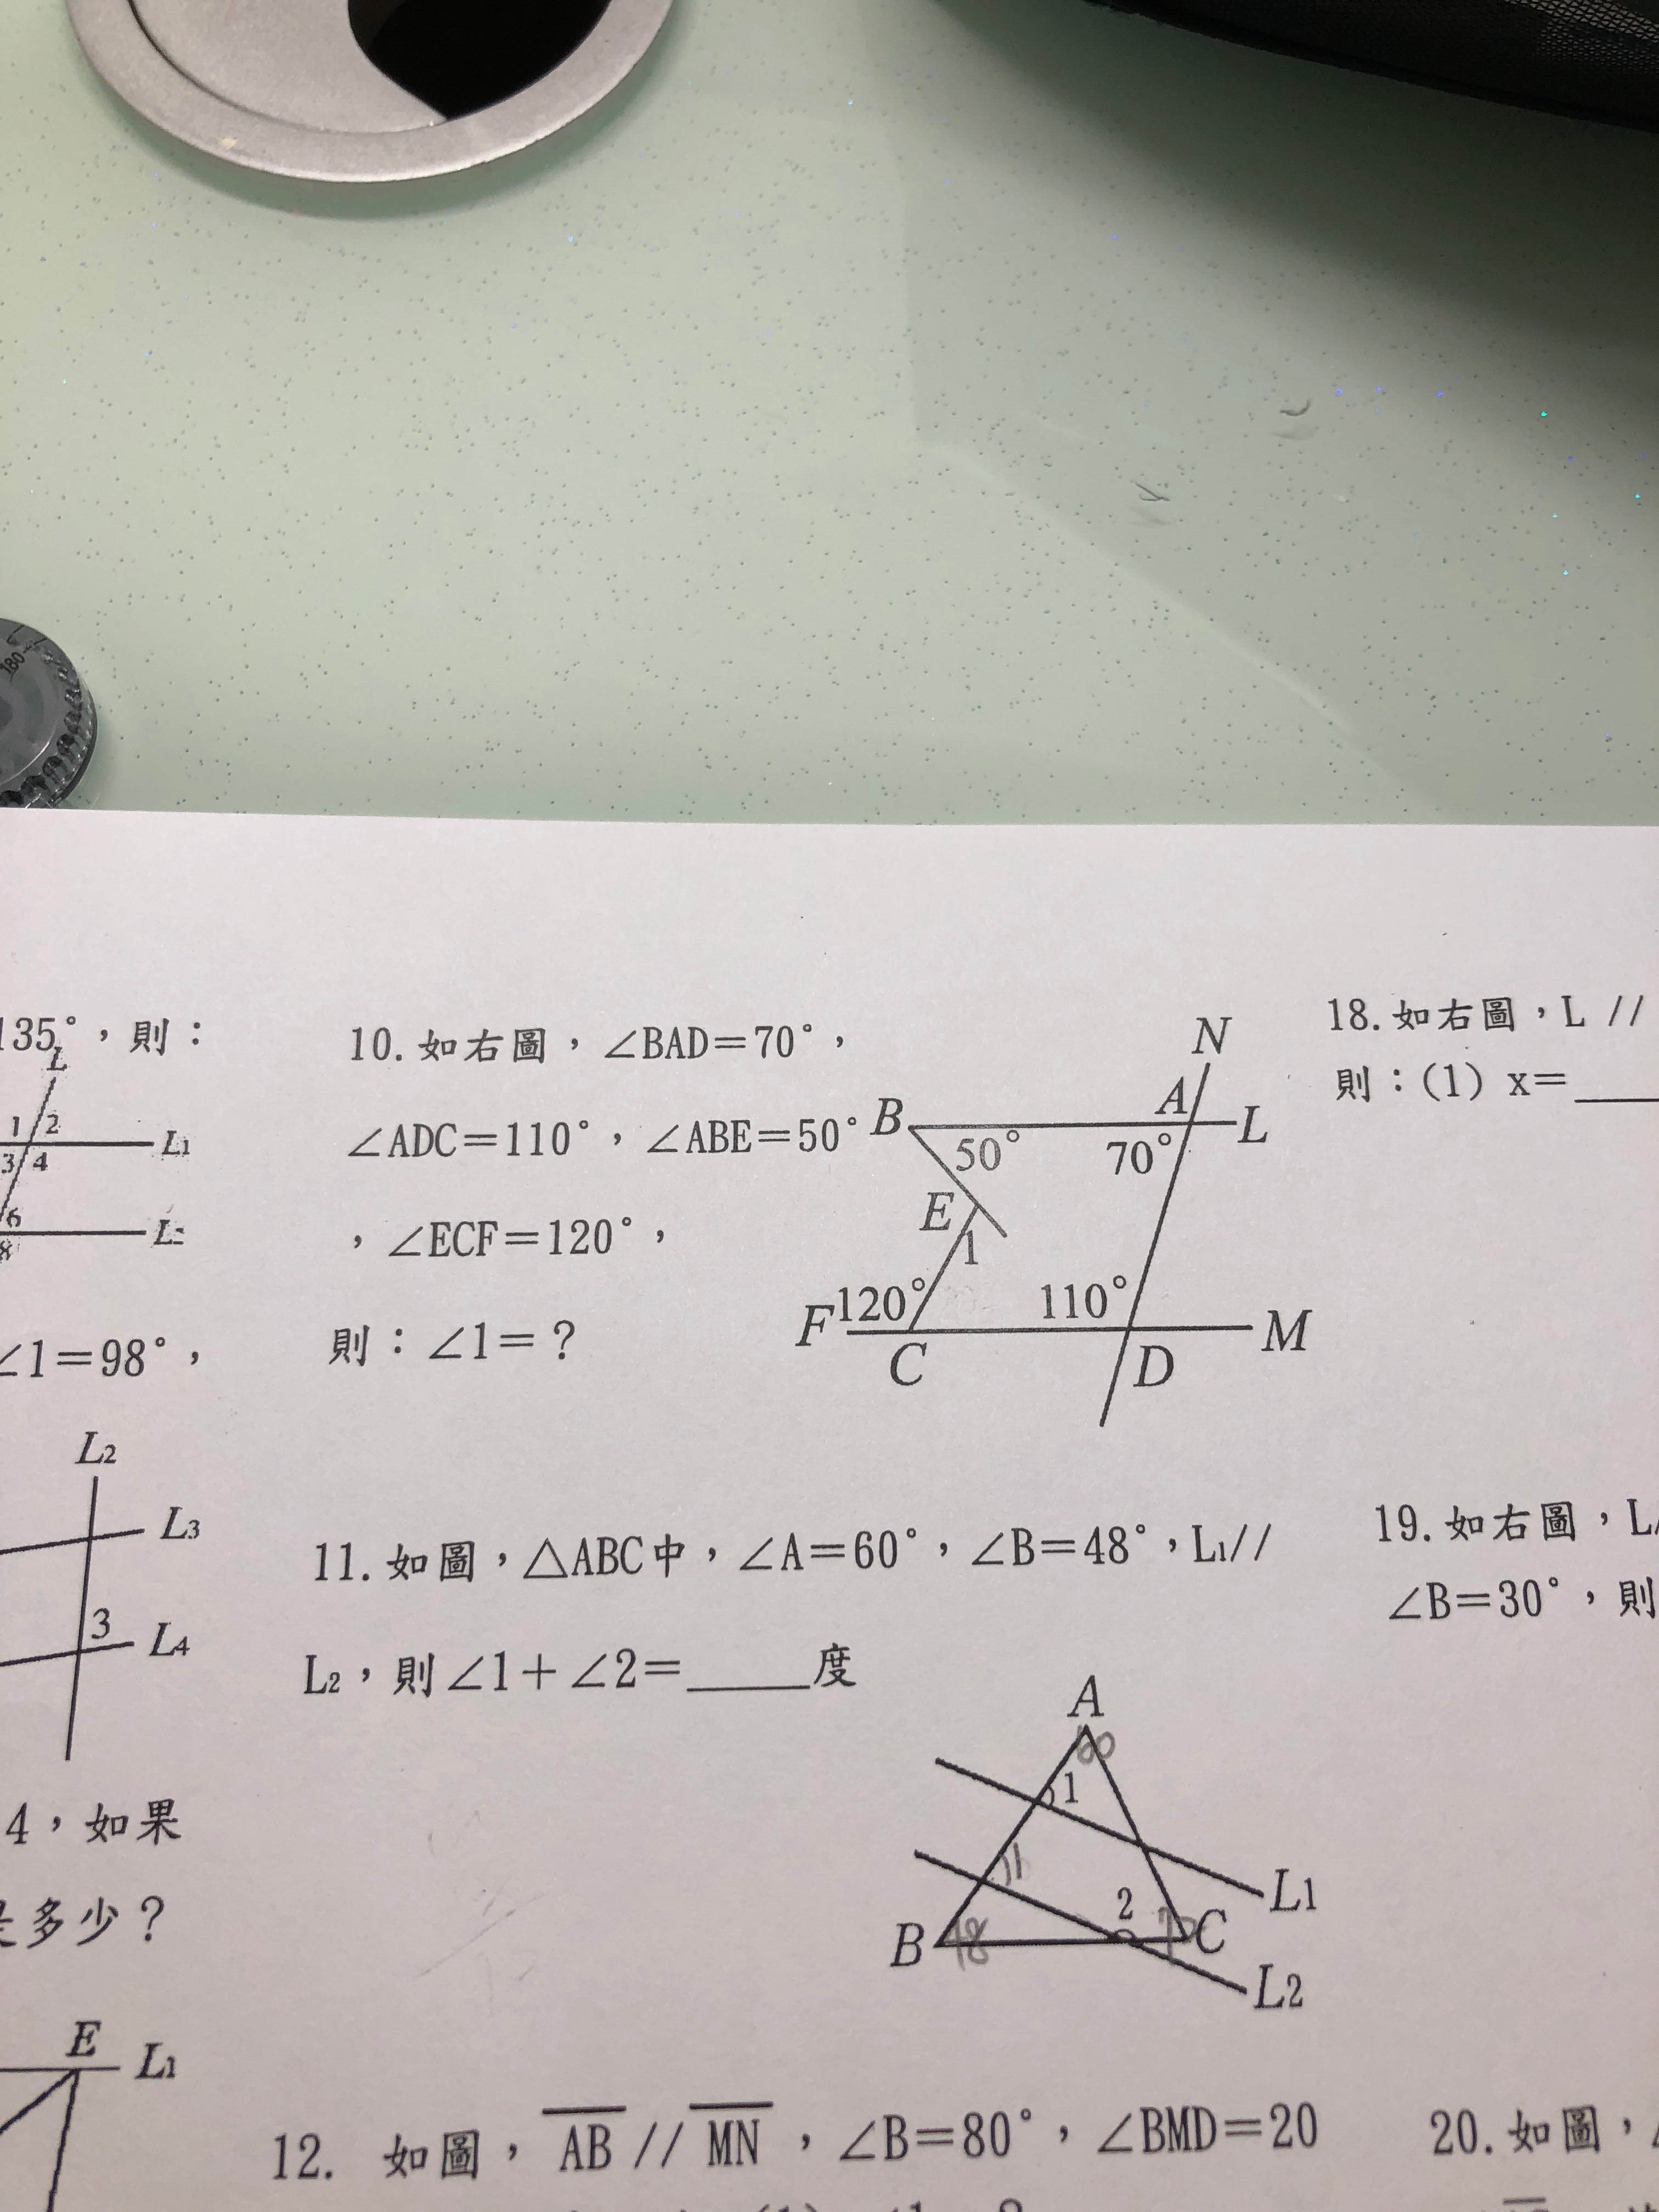 180
135°，則：
L
1 2
L1
3 4
6
8
∠1＝98°，
L2
L3
3
L4
4，如果
是多少？
E
L1
10.如右圖，∠BAD＝70°，
∠ADC＝110°，∠ABE＝50°
，∠ECF＝120°，
則：∠1＝？
N
A
B
L
50°
70°
E
1
120°
110°
F
M
C
D
11.如圖，△ABC中，∠A＝60°，∠B＝48°，L1//
L2，則∠1＋∠2＝____度
A
60
1
1
L1
2
B
48
C
L2
12. 如圖，AB // MN，∠B＝80°，∠BMD＝20
18.如右圖，L //
則：(1) x＝___
19.如右圖，L/
∠B＝30°，則
20.如圖，